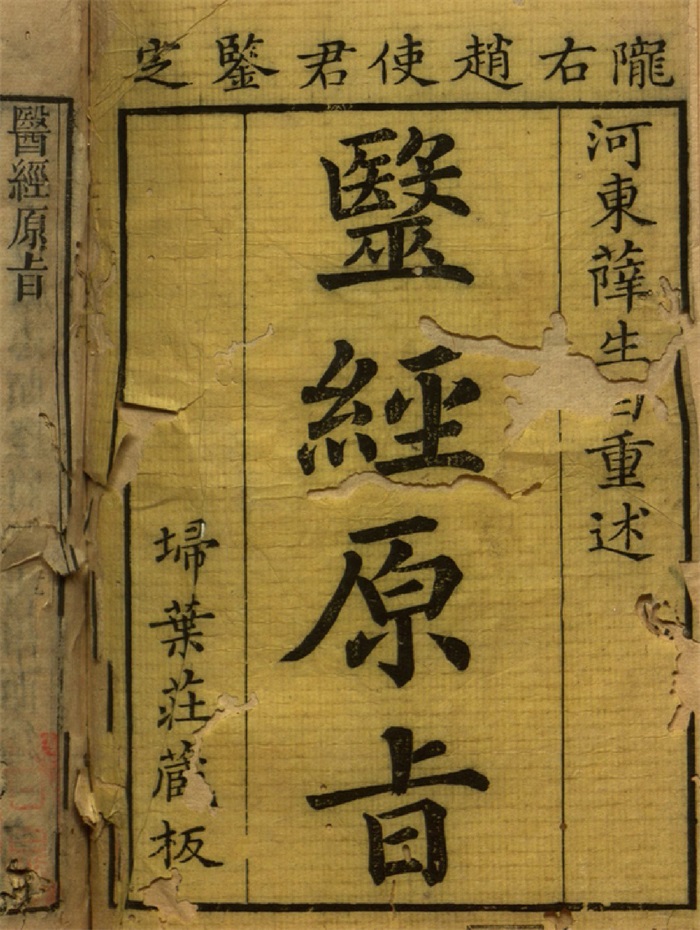 隴右趙使君鑒定
河東薛生白重述
毉經原㫖
埽葉莊藏板
醫經原㫖